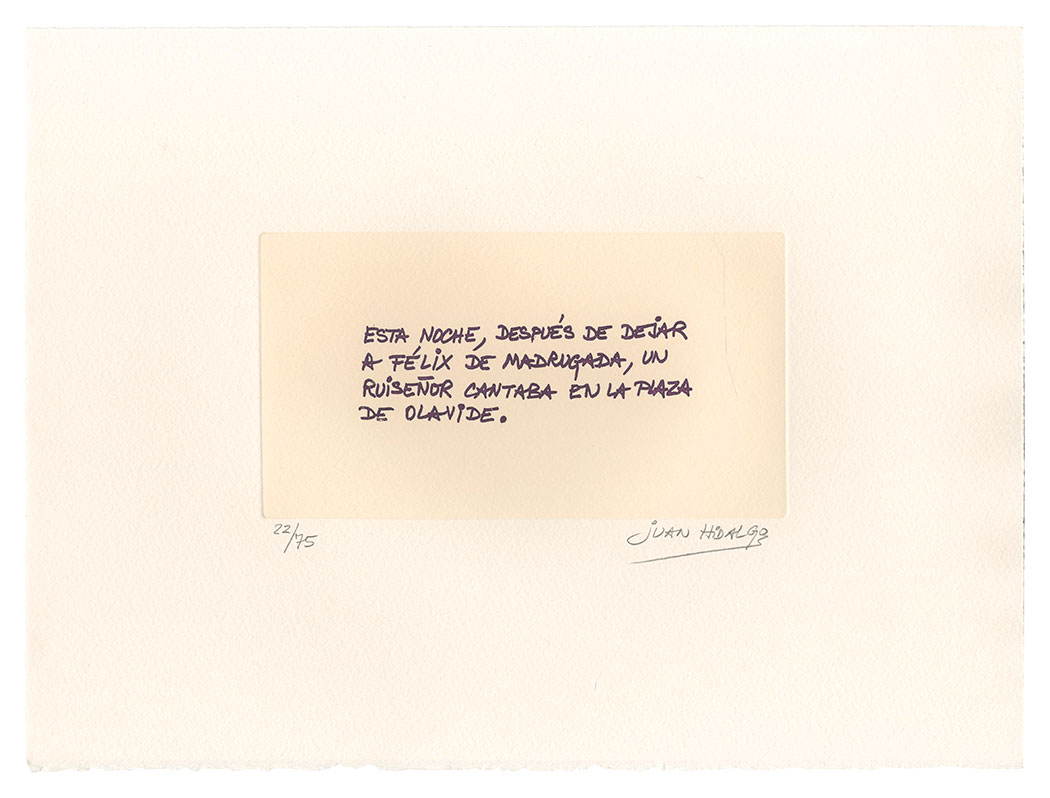 ESTA NOCHE, DESPUÉS DE DEJAR
A FÉLIX DE MADRUGADA, UN
RUISEÑOR CANTABA EN LA PLAZA
DE OLAVIDE.
22/75
JUAN HIDALGO